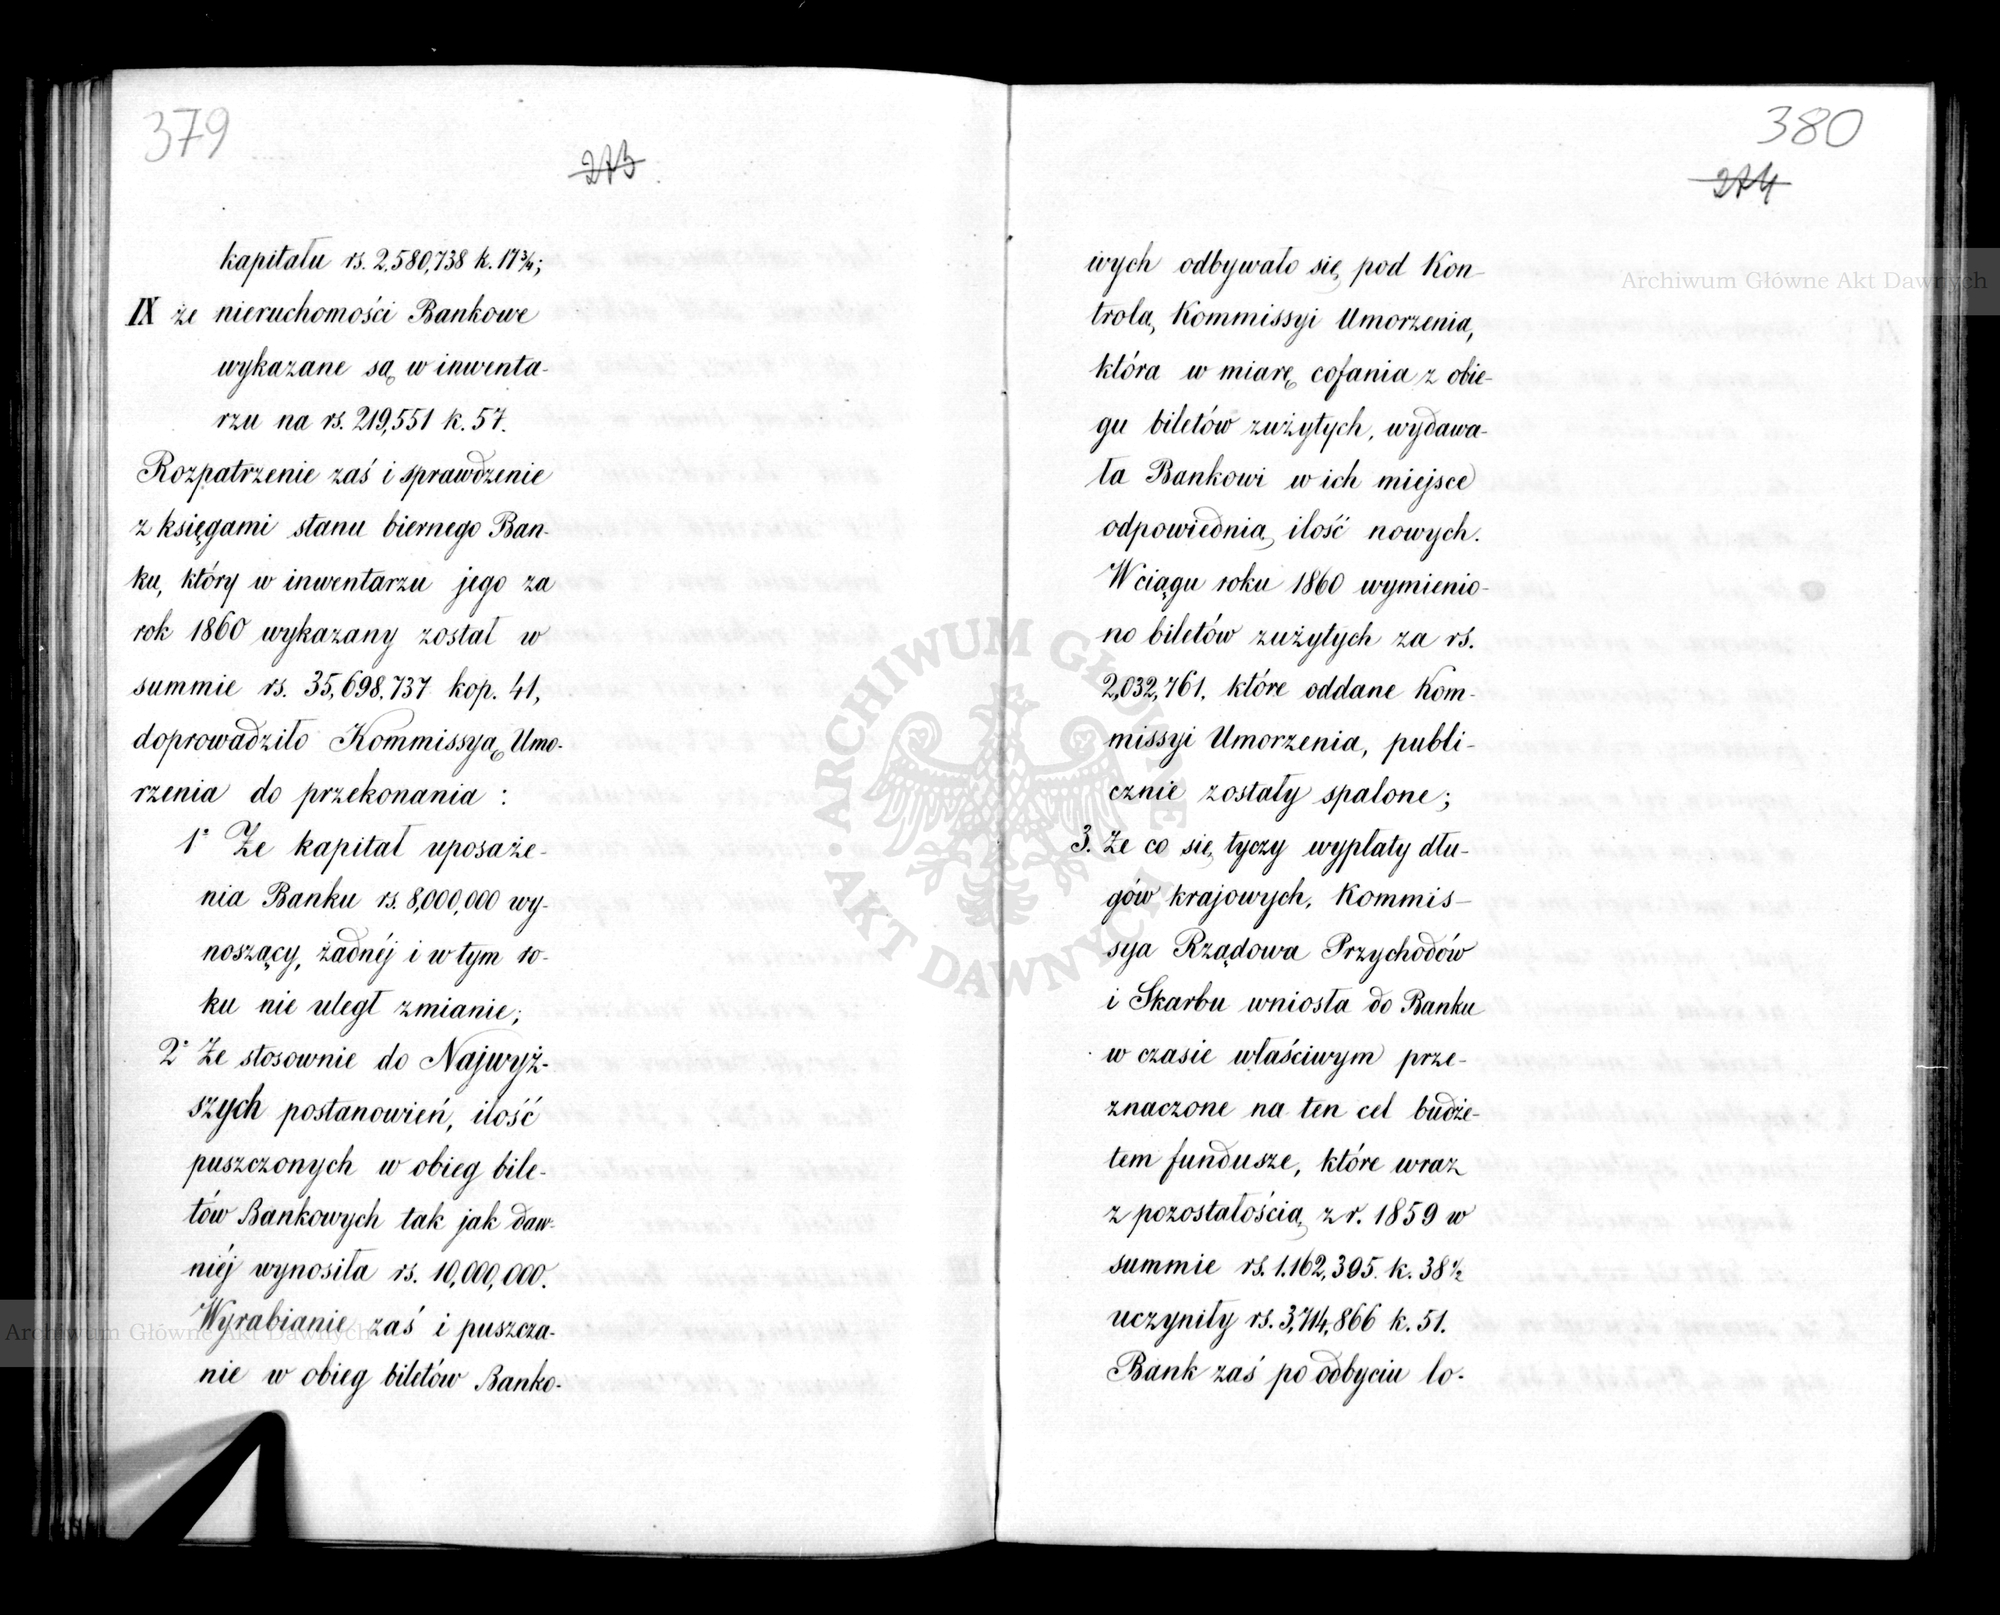 379
273
kapitału rs. 2,580,738 k. 17¾;
IX że nieruchomości Bankowe
wykazane są w inwenta-
rzu na rs. 219,551 k. 57.
Rozpatrzenie zaś i sprawdzenie
z księgami stanu biernego Ban-
ku, który w inwentarzu jego za
rok 1860 wykazany został w
summie rs. 35,698.737 kop. 41,
doprowadziło Kommissyą Umo-
rzenia do przekonania :
1° Że kapitał uposaże-
nia Banku rs. 8,000,000 wy-
noszący, żadnéj i w tym ro-
ku nie uległ zmianie;
2° Że stosownie do Najwyż-
szych postanowień, ilość
puszczonych w obieg bile-
tów Bankowych tak jak daw-
niéj wynosiła rs. 10,000,000.
Wyrabianie zaś i puszcza-
nie w obieg biletów Banko-
380
274
wych odbywało się pod Kon-
trolą Kommissyi Umorzenia,
która w miarę cofania z obie-
gu biletów zużytych, wydawa-
ła Bankowi w ich miejsce
odpowiednią ilość nowych.
W ciągu roku 1860 wymienio-
no biletów zużytych za rs.
2,032,761. które oddane Kom-
missyi Umorzenia, publi-
cznie zostały spalone;
3. Że co się tyczy wypłaty dłu-
gów krajowych, Kommis-
sya Rządowa Przychodów
i Skarbu wniosła do Banku
w czasie właściwym prze-
znaczone na ten cel budże-
tem fundusze, które wraz
z pozostałością z r. 1859 w
summie rs. 1.162,395. k. 38½
uczyniły rs. 3,714,866 k. 51.
Bank zaś po odbyciu lo-
Archiwum Główne Akt Dawnych
Archiwum Główne Akt Dawnych
ARCHIWUM GŁÓWNE
AKT DAWNYCH